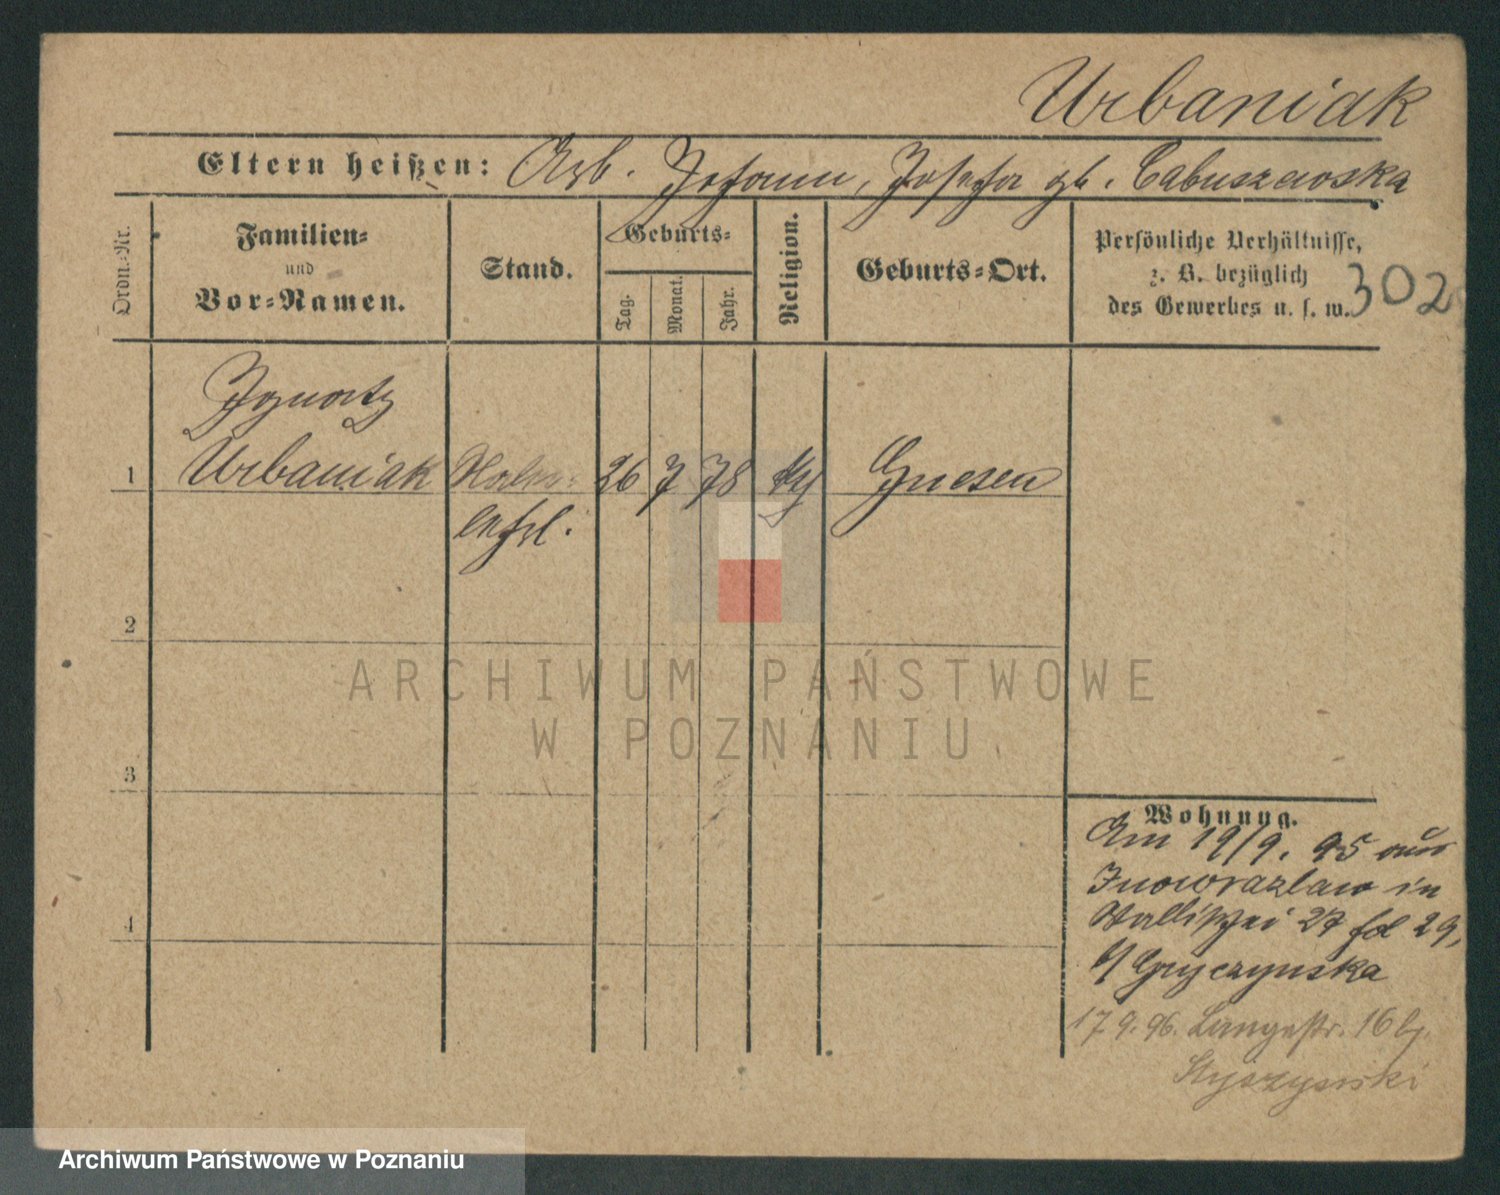 Urbaniak
Eltern heißen: Arb. Johann, Josefa gb. Cabuszewska
Ordn.-Nr.
Familien-
und
Vor-Namen.
Stand.
Geburts-
Tag.
Monat.
Jahr.
Religion.
Geburts-Ort.
Persönliche Verhältnisse,
z. B. bezüglich
des Gewerbes u. s. w.
302
Ignatz
1 Urbaniak 26 7 78 Gnesen
2
3
4
Wohnung.
Am 19/9. 95 aus
Inowrazlaw in
Wallischei 27 fol 29,
b/ Gryczynska
17 9. 96. Langestr. 16 b.
ARCHIWUM PAŃSTWOWE
W POZNANIU
Archiwum Państwowe w Poznaniu